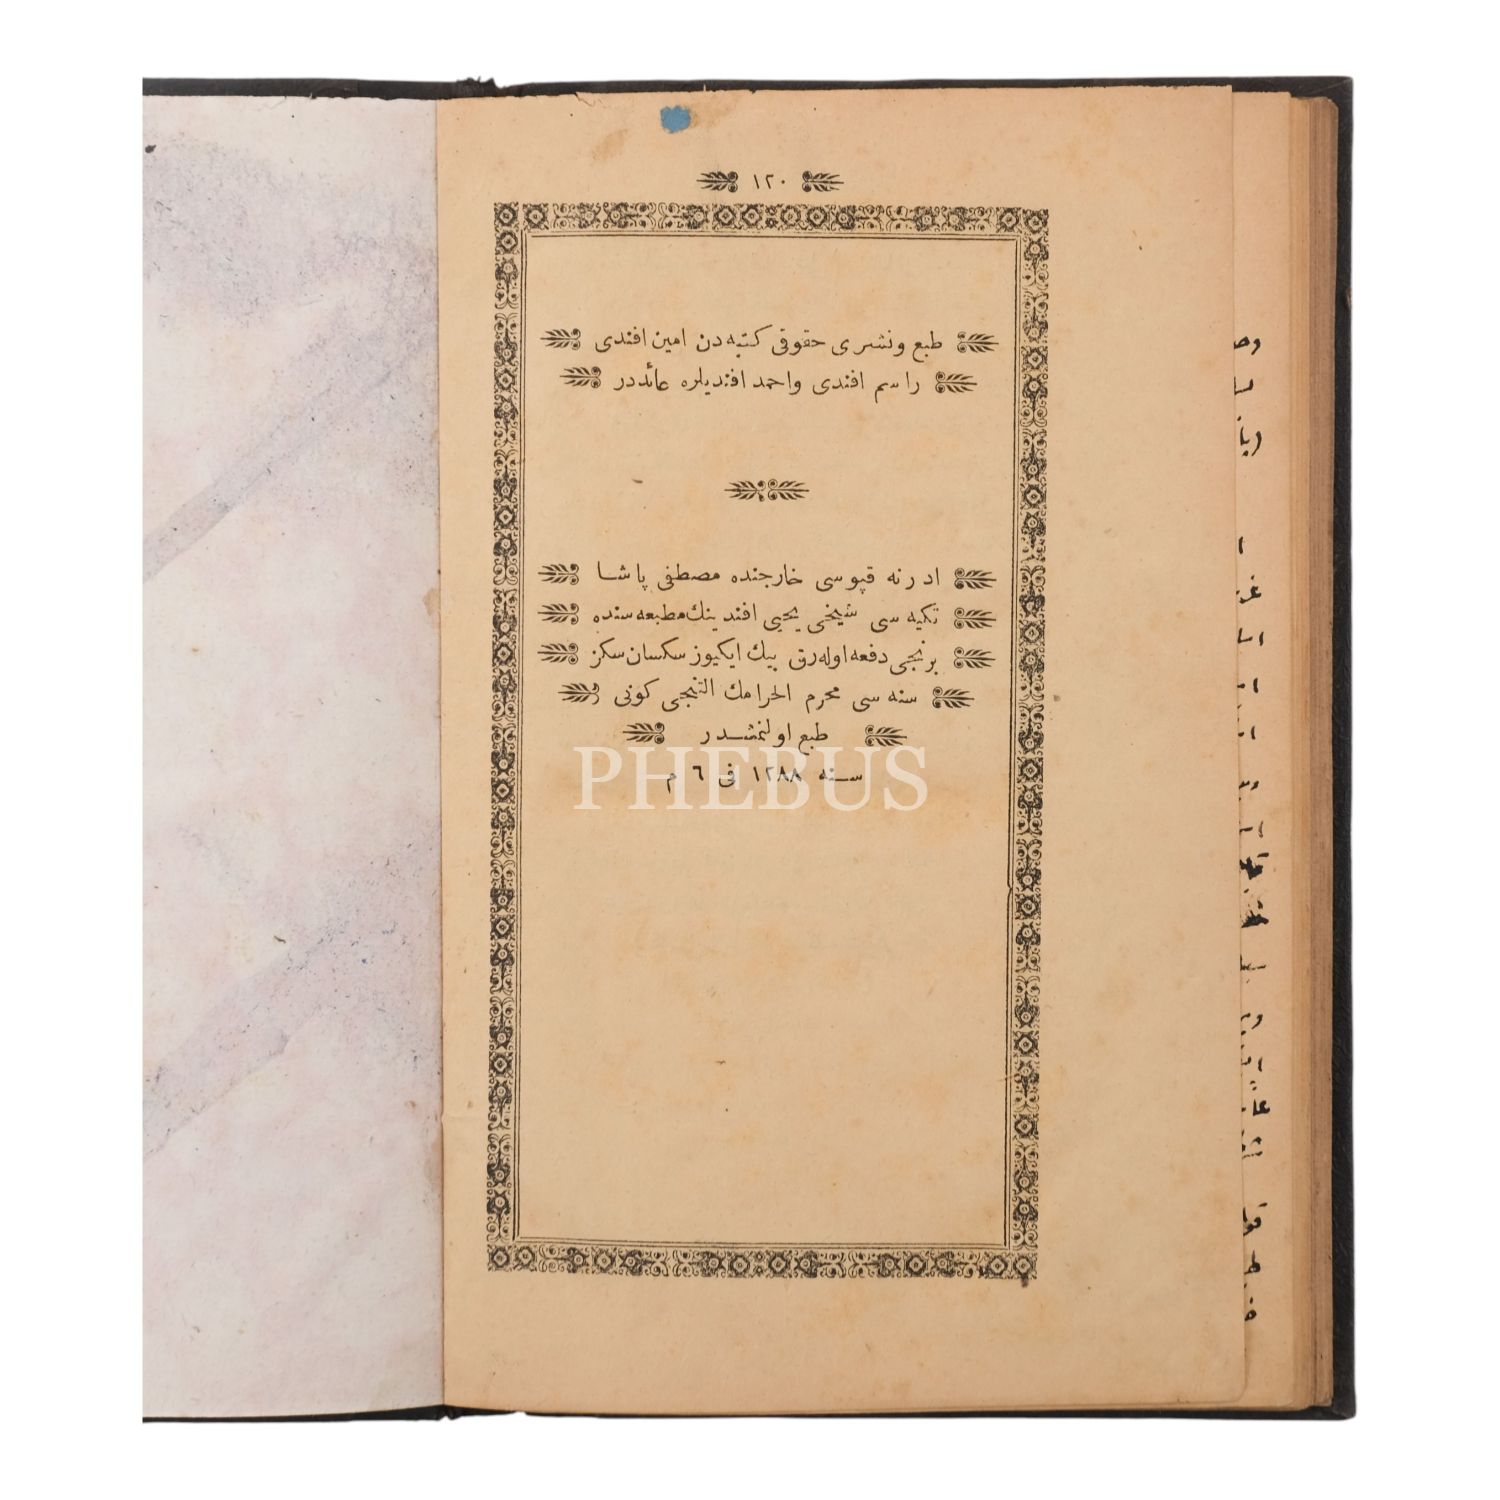 ١٢٠
طبع ونشرى حقوقى كتبه‌دن امين افندى
راسم افندى واحمد افنديلره عائددر
ادرنه قپوسى خارجنده مصطفى پاشا
تكيه سى شيخى يحيى افندينك مطبعه سنده
برنجى دفعه اوله‌رق بيك ايكيوز سكسان سكز
سنه سى محرم الحرامك التنجى كونى
طبع اولنمشدر
سنه ١٢٨٨ فى ٦ م
PHEBUS